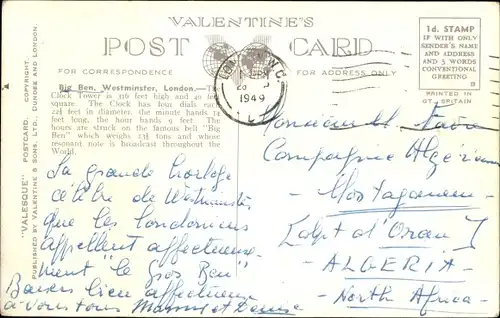 VALENTINE'S
POST CARD
FOR CORRESPONDENCE
FOR ADDRESS ONLY
1d. STAMP
IF WITH ONLY
SENDER'S NAME
AND ADDRESS
AND 5 WORDS
CONVENTIONAL
GREETING
PRINTED IN
GT. BRITAIN
"VALESQUE" POSTCARD.
PUBLISHED BY VALENTINE & SONS, LTD., DUNDEE AND LONDON.
Big Ben, Westminster, London.—The
Clock Tower is 316 feet high and 40 feet
square. The Clock has four dials each
22½ feet in diameter, the minute hands 14
feet long, the hour hands 9 feet. The
hours are struck on the famous bell "Big
Ben" which weighs 13½ tons and whose
resonant note is broadcast throughout the
World.
1949
La grande horloge
célèbre de Westminster
que les londoniens
appellent affectueuse-
ment "le Gros Ben"
Baisers bien affectueux
à vous tous et Denise
Monsieur et
Compagnie Algérienne
Mostaganem
Dépt d'Oran
ALGERIA -
North Africa -